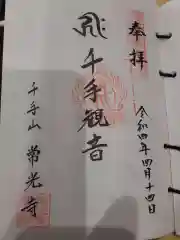 奉拝
令和四年四月十四日
千手観音
千手山
常光寺